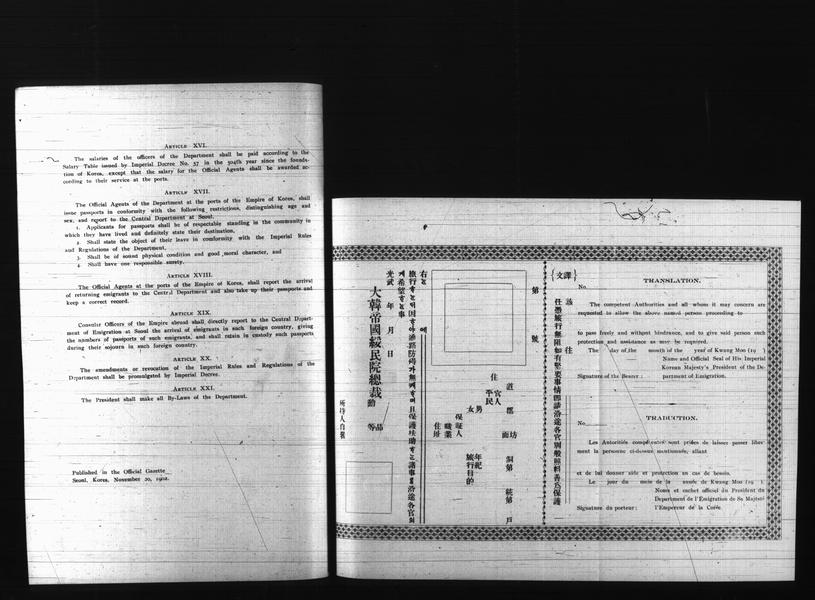 ARTICLE XVI.
The salaries of the officers of the Department shall be paid according to the
Salary Table issued by Imperial Decree No. 57 in the 504th year since the founda-
tion of Korea, except that the salary for the Official Agents shall be awarded ac-
cording to their service at the ports.
ARTICLE XVII.
The Official Agents of the Department at the ports of the Empire of Korea, shall
issue passports in conformity with the following restrictions, distinguishing age and
sex, and report to the Central Department at Seoul.
1. Applicants for passports shall be of respectable standing in the community in
which they have lived and definitely state their destination,
2. Shall state the object of their leave in conformity with the Imperial Rules
and Regulations of the Department,
3. Shall be of sound physical condition and good moral character, and
4. Shall have one responsible surety.
ARTICLE XVIII.
The Official Agents at the ports of the Empire of Korea, shall report the arrival
of returning emigrants to the Central Department and also take up their passports and
keep a correct record.
ARTICLE XIX.
Consular Officers of the Empire abroad shall directly report to the Central Depart-
ment of Emigration at Seoul the arrival of emigrants in such foreign country, giving
the numbers of passports of such emigrants, and shall retain in custody such passports
during their sojourn in such foreign country.
ARTICLE XX.
The amendments or revocation of the Imperial Rules and Regulations of the
Department shall be promulgated by Imperial Decree.
ARTICLE XXI.
The President shall make all By-Laws of the Department.
Published in the Official Gazette
Seoul, Korea, November 20, 1902.
第 號
道 郡 坊面 洞第 統第 戶
住
官人
平民
男女
年紀
旅行目的
保證人
職業
住址
右と
光武 年 月 日
大韓帝國綏民院總裁
勳 等品
所持人自署
{譯文}
TRANSLATION.
No.
The competent Authorities and all whom it may concern are
requested to allow the above named person proceeding to
to pass freely and without hindrance, and to give said person such
protection and assistance as may be required.
The day of the month of the year of Kwang Moo (19 )
Name and Official Seal of His Imperial
Korean Majesty's President of the De-
Signature of the Bearer : partment of Emigration.
TRADUCTION.
No.
Les Autoriées compétentes sont priées de laisser passer liber
ment la personne ci-dessus mentionnée, allant
et de lui donner aide et protection en cas de besoin.
Le jour du mois de la année de Kwang Moo (19 ).
Noms et cachet officiel du President du
Department de l'Emigration de Sa Majesté
Signature du porteur: l'Empereur de la Corée.